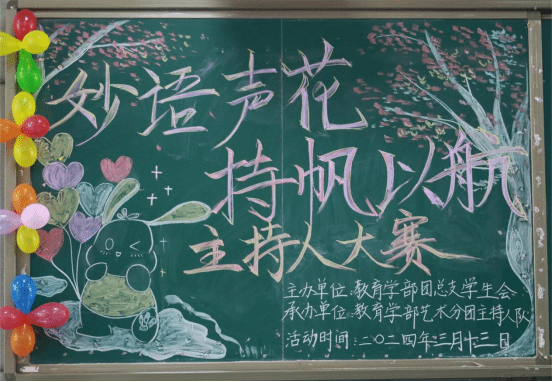 妙语声花
持帆以航
主持人大赛
主办单位:教育学部团总支学生会
承办单位:教育学部艺术分团主持人队
活动时间:二〇二四年三月十三日